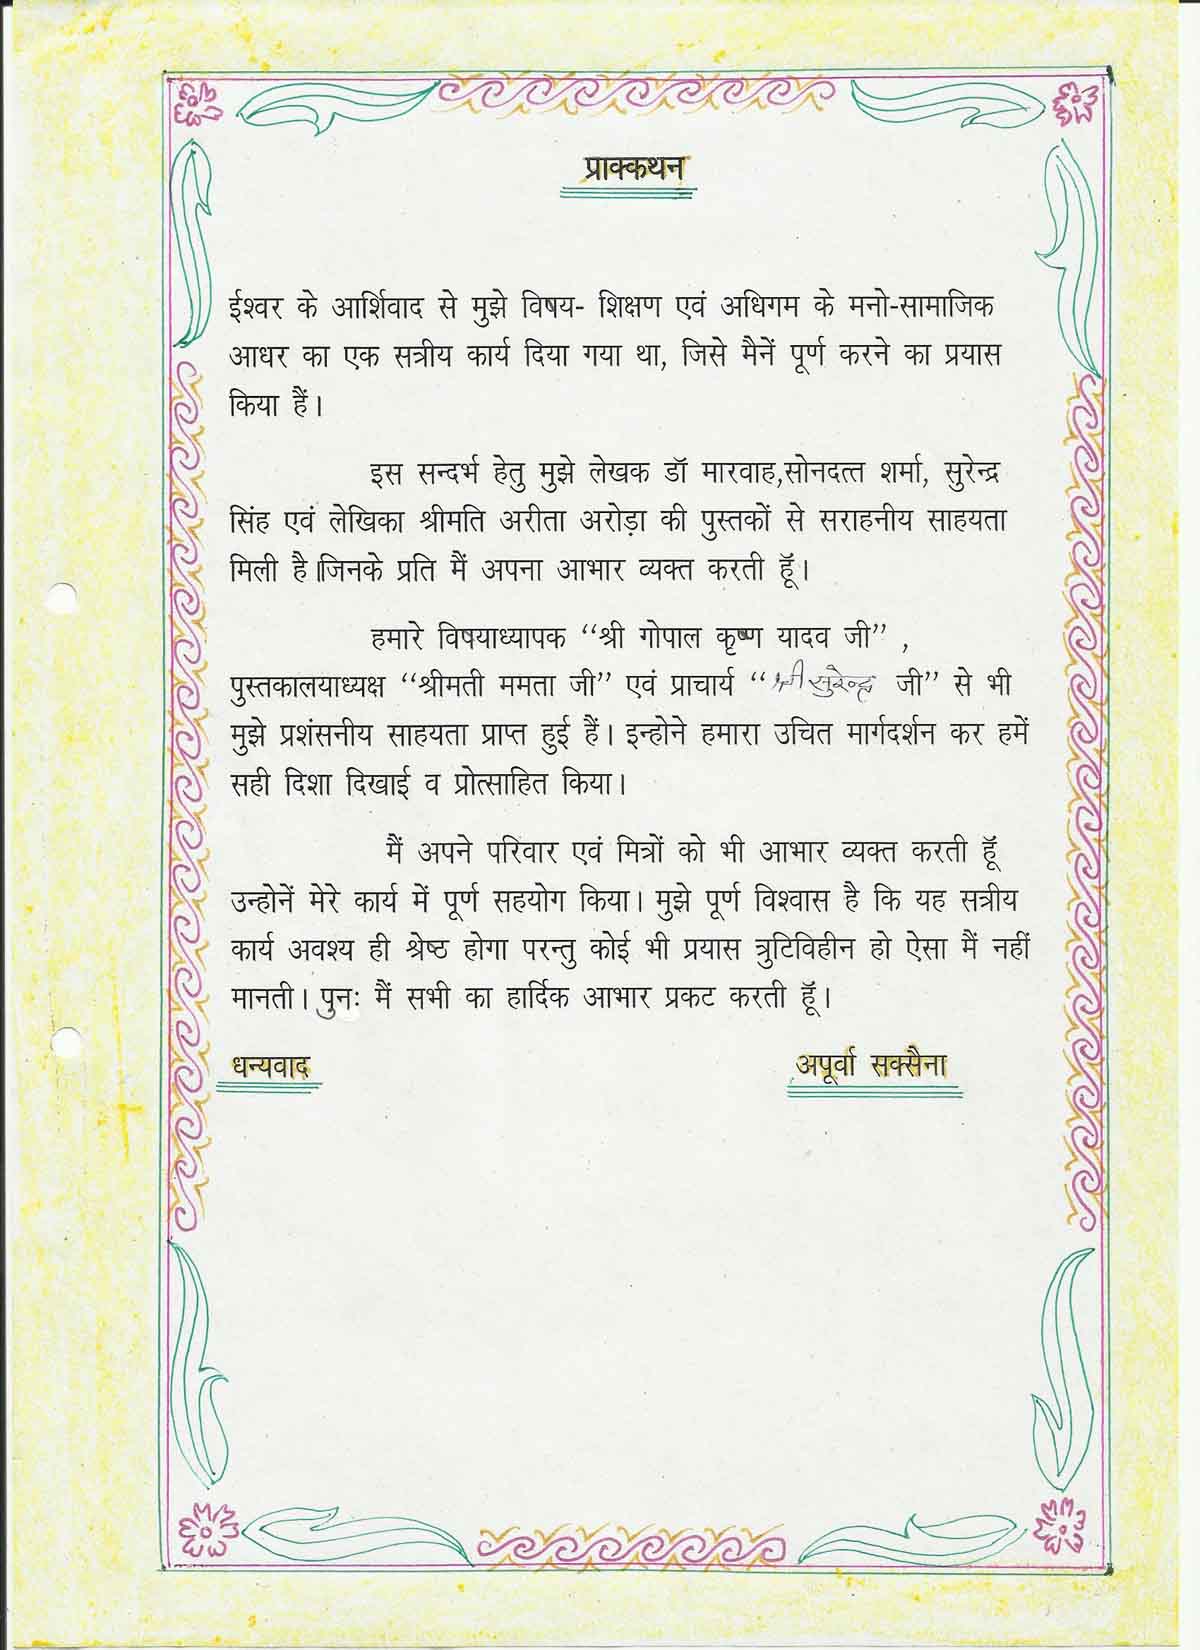 प्राक्कथन
ईश्वर के आर्शिवाद से मुझे विषय- शिक्षण एवं अधिगम के मनो-सामाजिक
आधर का एक सत्रीय कार्य दिया गया था, जिसे मैनें पूर्ण करने का प्रयास
किया हैं।
इस सन्दर्भ हेतु मुझे लेखक डॉ मारवाह,सोनदत्त शर्मा, सुरेन्द्र
सिंह एवं लेखिका श्रीमति अरीता अरोड़ा की पुस्तकों से सराहनीय साहयता
मिली है।जिनके प्रति मैं अपना आभार व्यक्त करती हूॅ।
हमारे विषयाध्यापक “श्री गोपाल कृष्ण यादव जी” ,
पुस्तकालयाध्यक्ष “श्रीमती ममता जी” एवं प्राचार्य “श्री सुरेन्द्र जी” से भी
मुझे प्रशंसनीय साहयता प्राप्त हुई हैं। इन्होने हमारा उचित मार्गदर्शन कर हमें
सही दिशा दिखाई व प्रोत्साहित किया।
मैं अपने परिवार एवं मित्रों को भी आभार व्यक्त करती हूॅ
उन्होनें मेरे कार्य में पूर्ण सहयोग किया। मुझे पूर्ण विश्वास है कि यह सत्रीय
कार्य अवश्य ही श्रेष्ठ होगा परन्तु कोई भी प्रयास त्रुटिविहीन हो ऐसा मैं नहीं
मानती। पुनः मैं सभी का हार्दिक आभार प्रकट करती हूॅ।
धन्यवाद अपूर्वा सक्सैना